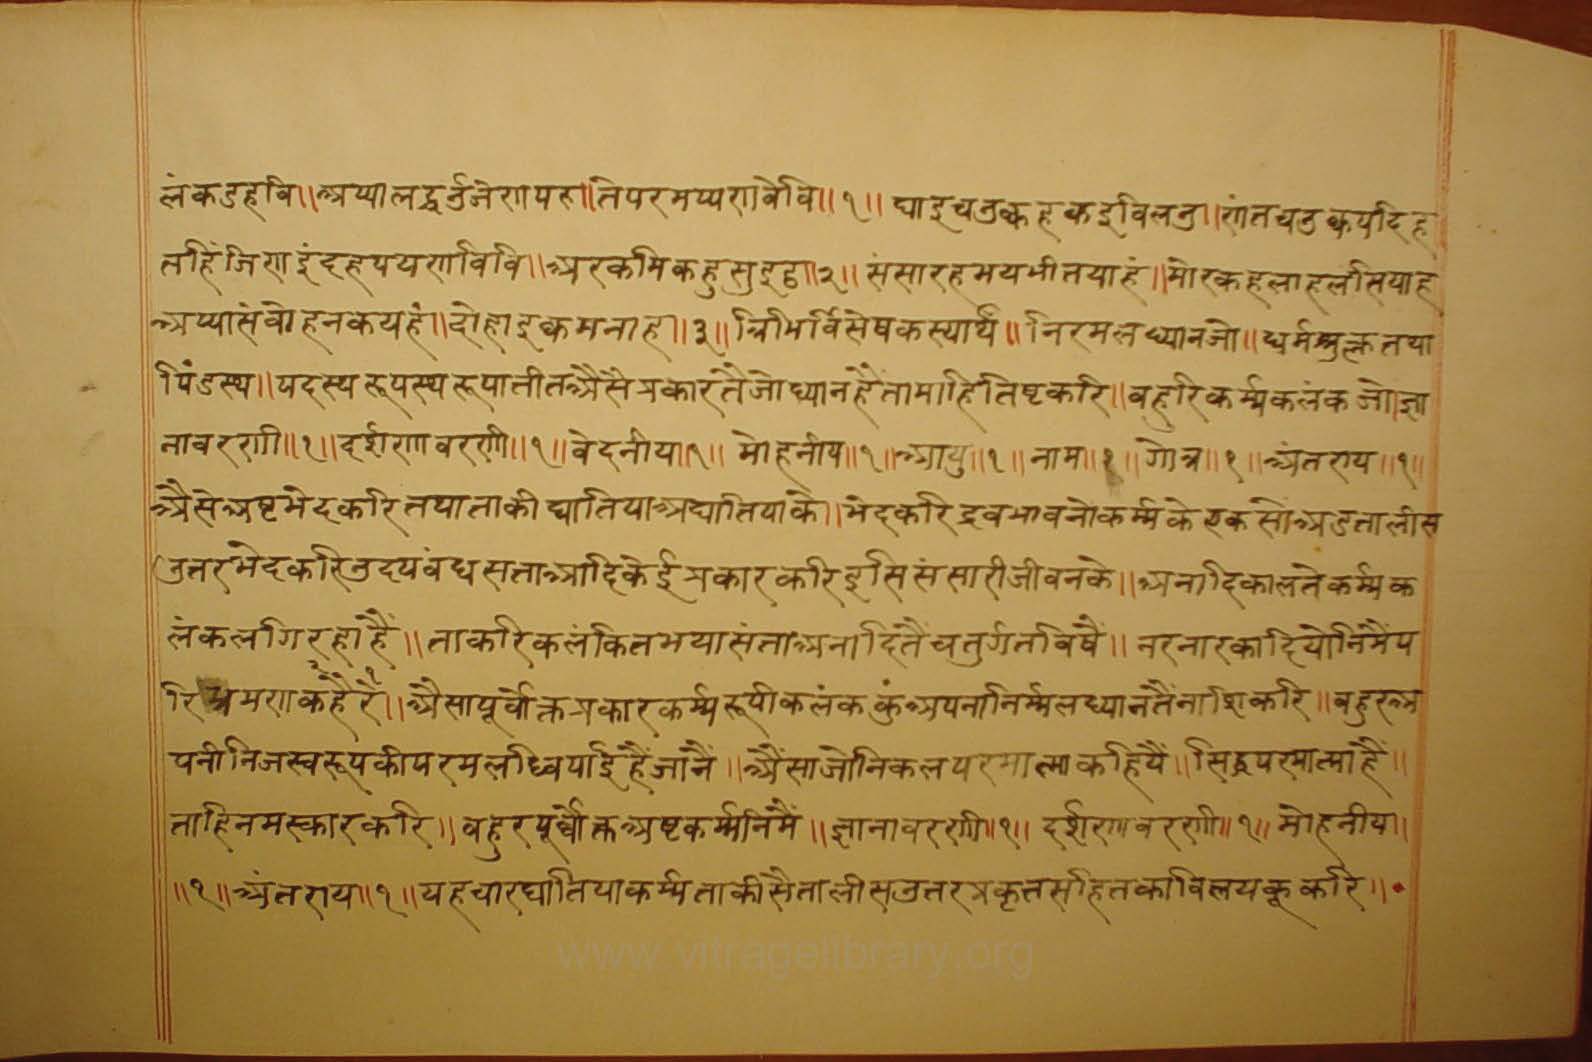 लंकडहवि॥अप्पालद्धउजेणपरु॥तेपरमप्पणवेवि॥१॥ घाइचउक्कहकइविलउ॥णंतचउक्कपदिह
तहिंजिणइंदहपयणविवि॥अरकमिकहुसुइठ॥२॥ संसारहभयभीतयाहं॥मोरकहलाहलसियाह
अप्पासंवोहनकयहं॥दोहाइक्कमनाह॥३॥ त्रिभिर्विसेषकस्यार्थं॥ निरमलध्यानजो॥धर्मशुक्लतथा
पिंडस्थ॥पदस्थरूपस्थरूपातीतअैसैप्रकारतैजोध्यानहैतामाहितिष्टकरि॥बहुरिकर्म्मकलंकजोज्ञा
नावरणी॥१॥दर्शणावरणी॥१॥वेदनीय॥१॥ मोहनीय॥१॥आयु॥१॥ नाम॥१॥गोत्र॥१॥अंतराय॥१॥
अैसेअष्टभेदकरितथाताकीघातियाअघातियाके॥भेदकरिद्रवभावनोकर्म्मकेएकसोअडतालीस
उतरभेदकरिउदयबंधसताआदिकेईप्रकारकरिइसिसंसारीजीवनके॥अनादिकालतेकर्म्मक
लंकलगिरहाहैं॥ताकरिकलंकितभयासंताअनादितैंचतुर्गतविषैं॥नरनारकादियोनिमैंप
रिभ्रमणकरैहै॥अैसापूर्वोक्तप्रकारकर्म्मरूपीकलंककुंअपनानिर्म्मलध्यानतैंनाशिकरि॥बहुरअ
पनीनिजस्वरूपकीपरमलब्धिपाईहैंजानैं॥अैंसाजोनिकलपरमात्माकहियैं॥सिद्धपरमात्माहैं॥
ताहिनमस्कारकरि॥बहुरपूर्वोक्तअष्टकर्म्मनिमैं॥ज्ञानावरणी॥१॥ दर्शणावरणी॥१॥मोहनीय॥
॥१॥अंतराय॥१॥यहचारघातियाकर्म्मताकीसैतालीसउतरप्रकृतसहितकाविलयकूकरि॥
www.vitragelibrary.org